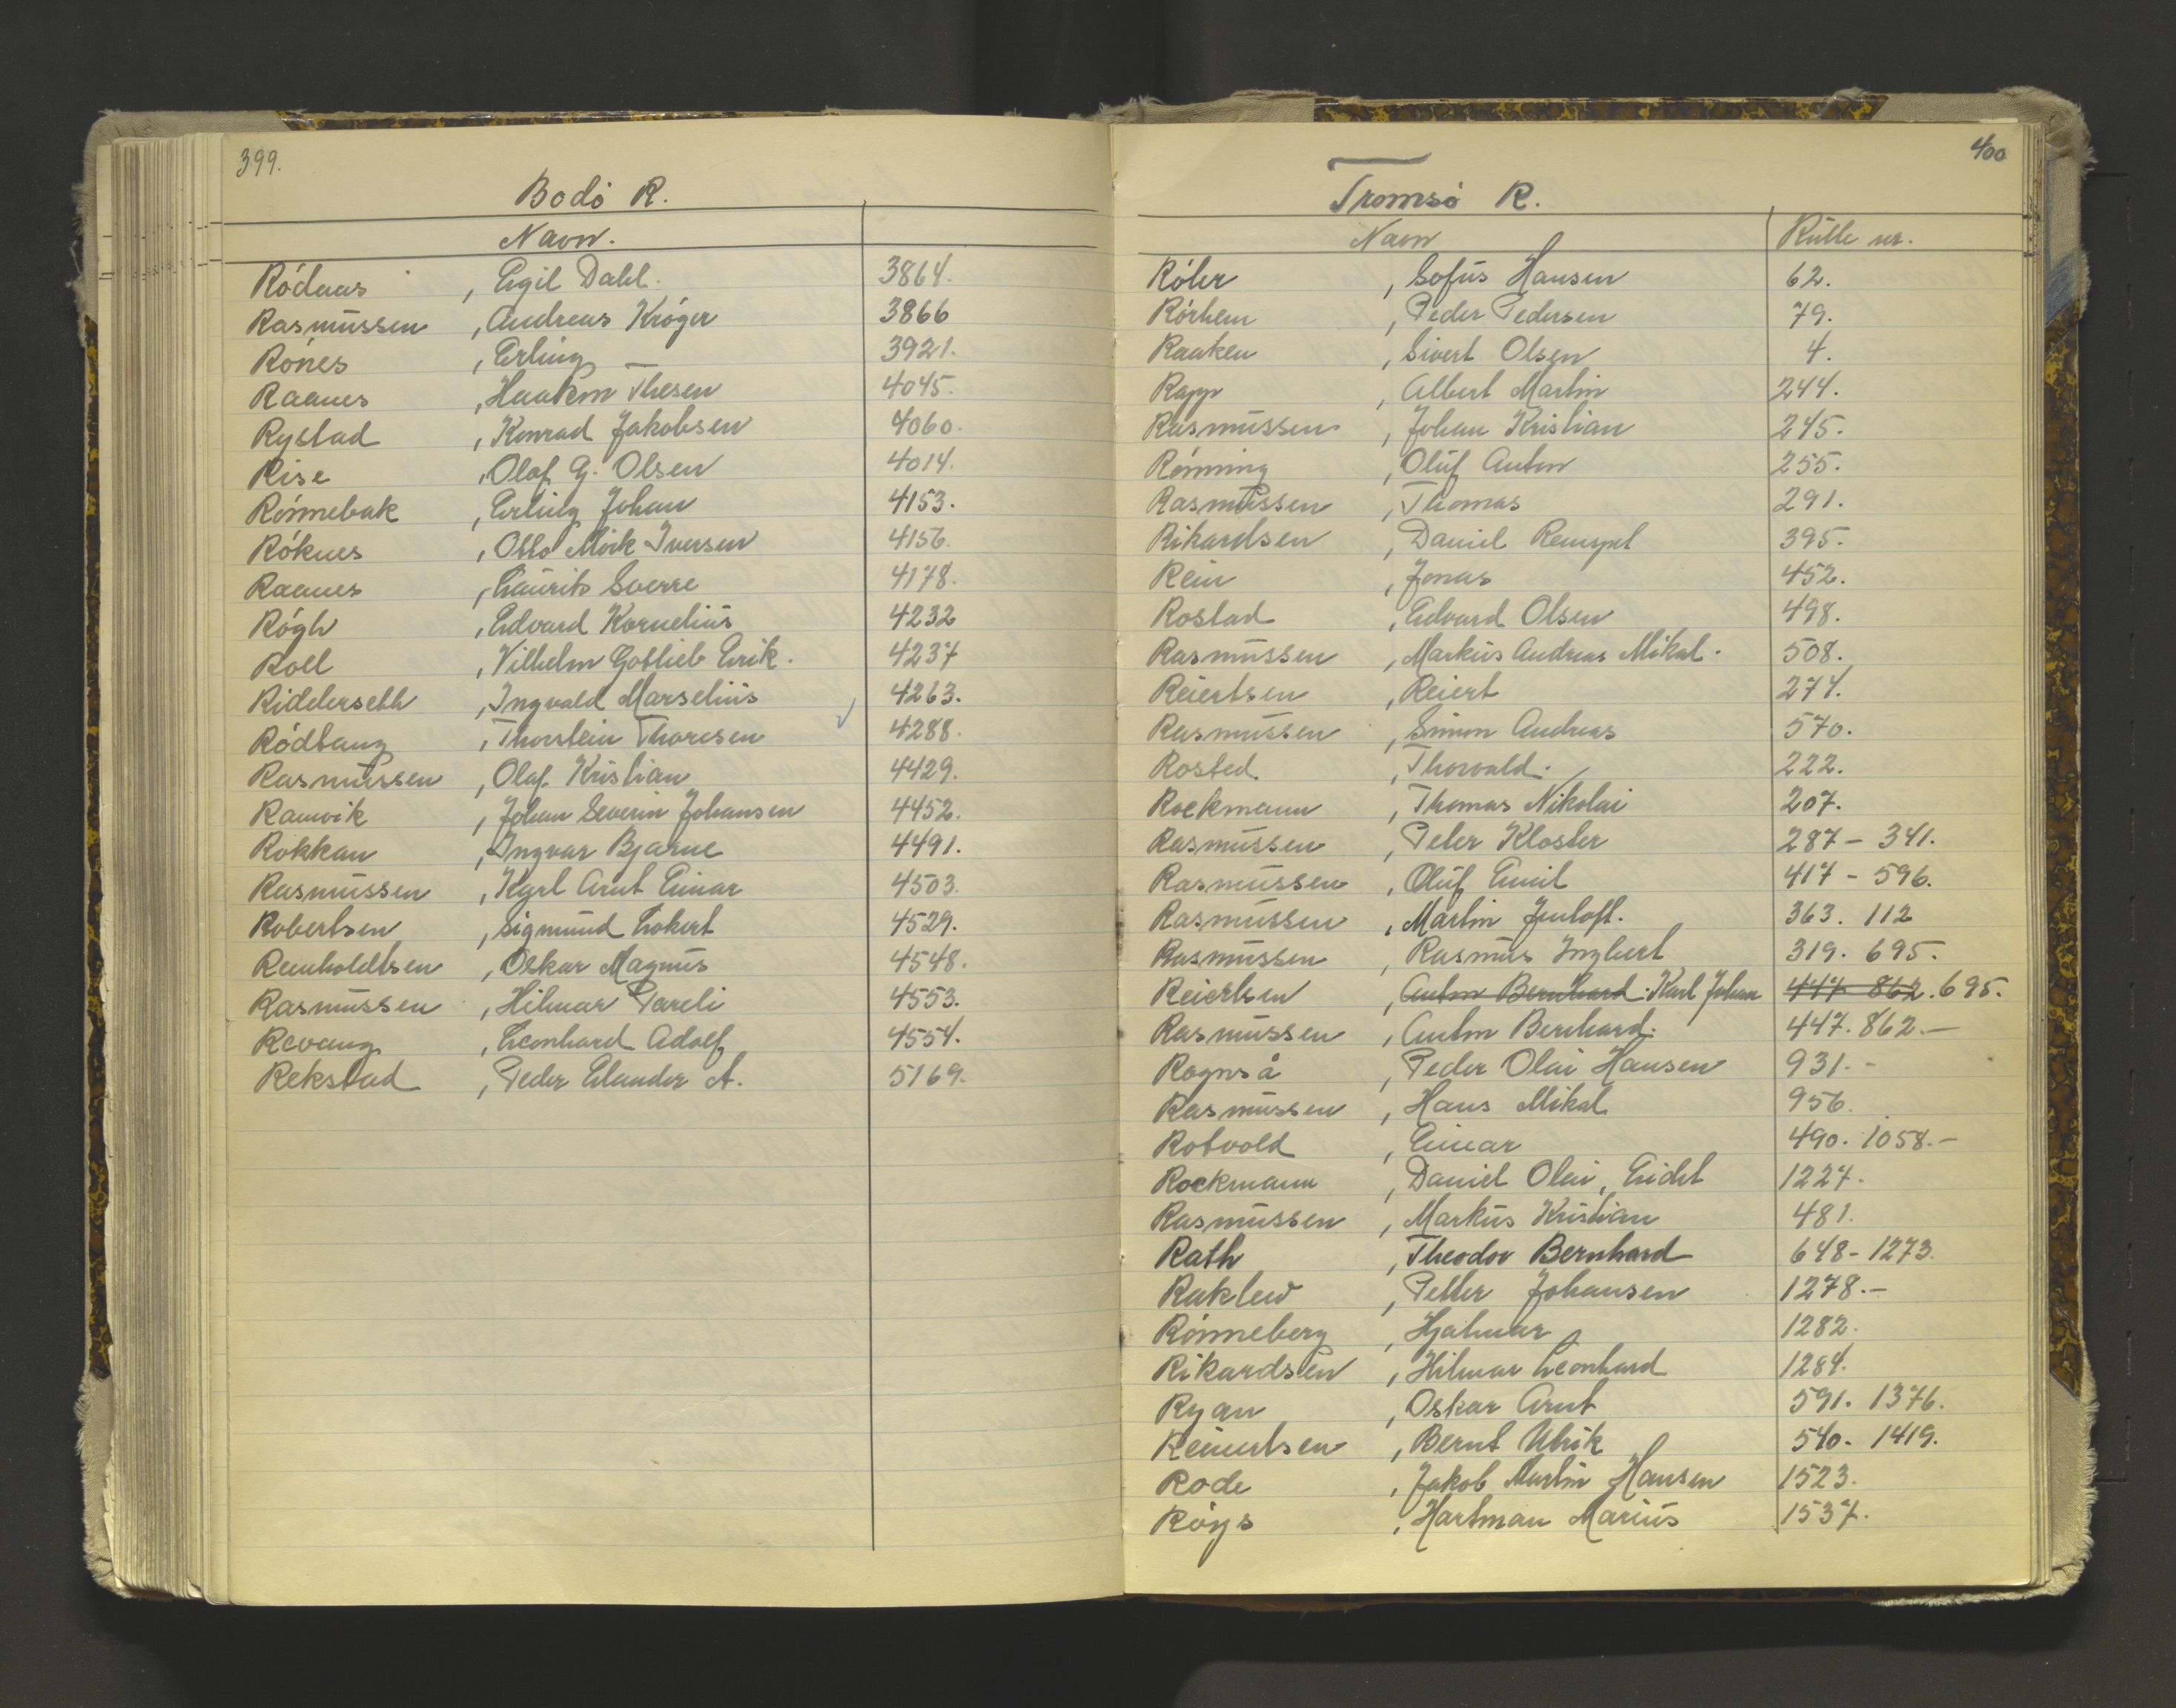 399.
Bodø R.
Navn.
Rödaas, Egil Dahl. 3864.
Rasmussen, Andreas Kröger 3866
Rönes, Erling 3921.
Raanes, Haakon Thesen 4045.
Rystad, Konrad Jakobsen 4060.
Rise, Olaf G. Olsen 4014.
Rönnebak, Erling Johan 4153.
Röknes, Otto Mörk Iversen 4156.
Raanes, Laurits Sverre 4178.
Rögh, Edvard Kornelius 4232
Roll, Vilhelm Gotlieb Erik. 4237
Ridderseth, Ingvald Marselius 4263.
Rödtang, Thorstein Thoresen 4288.
Rasmussen, Olaf Kristian 4429.
Ramvik, Johan Severin Johansen 4452.
Rokkan, Ingvar Bjarne 4491.
Rasmussen, Karl Arnt Einar 4503.
Robertsen, Sigmund Lokert 4529.
Reinholdtsen, Oskar Magnus 4548.
Rasmussen, Hilmar Pareli 4553.
Revang, Leonhard Adolf 4554.
Rekstad, Peder Elander A. 5169.
400
Tromsö R.
Navn Rulle nr.
Röler, Sofus Hansen 62.
Rörhem, Peder Pedersen 79.
Raaken, Sivert Olsen 4.
Rapp, Albert Martin 244.
Rasmussen, Johan Kristian 245.
Rönning, Oluf Anton 255.
Rasmussen, Thomas 291.
Rikardsen, Daniel 395.
Rein, Jonas 452.
Rostad, Edvard Olsen 498.
Rasmussen, Markus Andreas Mikal. 508.
Reiertsen, Reiert 274.
Rasmussen, Simon Andreas 570.
Rosted., Thorvald. 222.
Rockmann, Thomas Nikolai 207.
Rasmussen, Peter Kloster 287 - 341.
Rasmussen, Oluf Emil 417 - 596.
Rasmussen, Martin Jentoft. 363. 112
Rasmussen, Rasmus Ingbert 319. 695.
Reiertsen, Anton Bernhard. Karl Johan 447 862. 695.
Rasmussen, Anton Bernhard. 447. 862.-
Rognså, Peder Olai Hansen 931.-
Rasmussen, Hans Mikal 956.
Rotvold, Einar 490. 1058.-
Rockmann, Daniel Olai, Eidet 1227.
Rasmussen, Markus Kristian 481.
Rath, Theodor Bernhard 648 - 1273.
Raklew, Petter Johansen 1278.-
Rönneberg, Hjalmar 1282.
Rikardsen, Hilmar Leonhard 1284.
Ryan, Oskar Arnt 591. 1376.
Reinertsen, Bernt Ulrik 540. 1419.
Rode, Jakob Martin Hansen 1523.
Röys, Hartman Marius 1537.